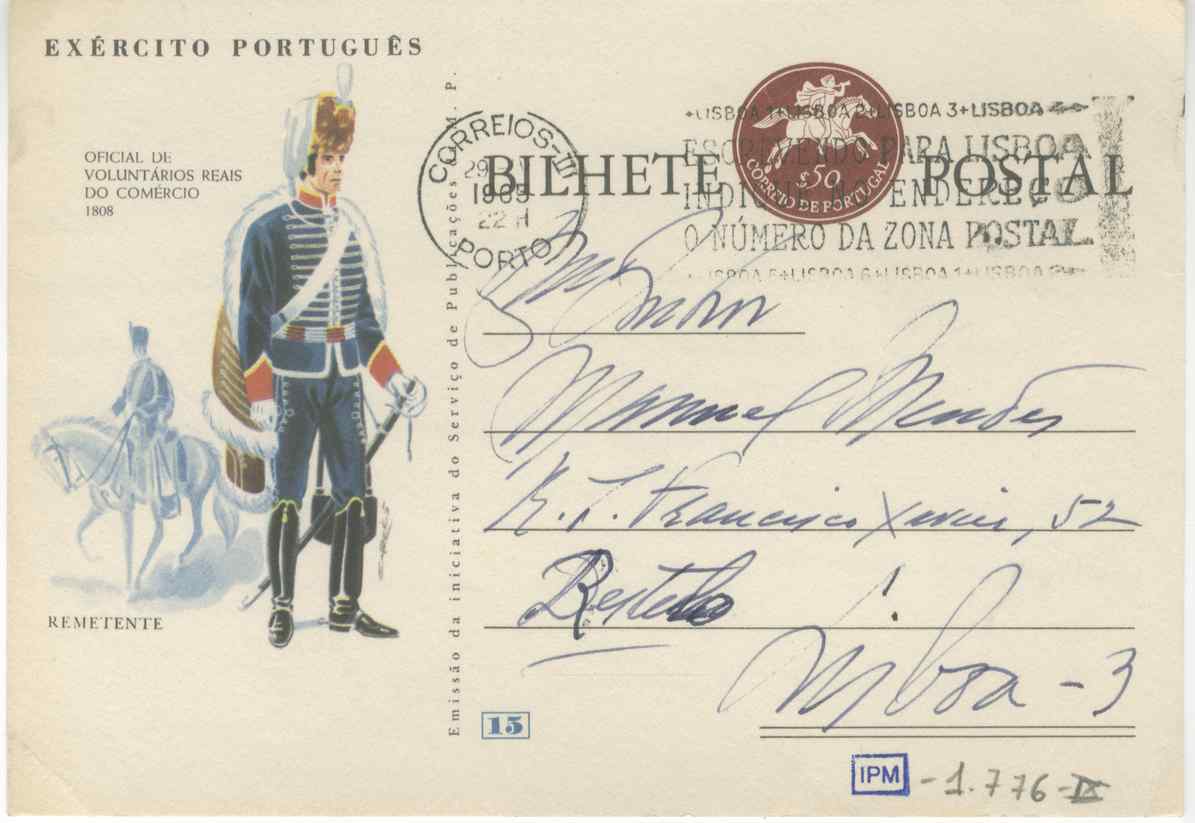 EXÉRCITO PORTUGUÊS
OFICIAL DE
VOLUNTÁRIOS REAIS
DO COMÉRCIO
1808
REMETENTE
Emissão da iniciativa do Serviço de Publicações M. P.
CORREIOS
29
22 H
PORTO
BILHETE POSTAL
$50
CORREIO DE PORTUGAL
+LISBOA 1+LISBOA 2+LISBOA 3+LISBOA
ESCREVENDO PARA LISBOA
INDIQUE NO ENDEREÇO
O NÚMERO DA ZONA POSTAL
LISBOA 5+LISBOA 6+LISBOA 1+LISBOA
Manuel Mendes
R. S. Francisco Xavier, 52
Restelo
Lisboa - 3
15
IPM - 1.776-IX